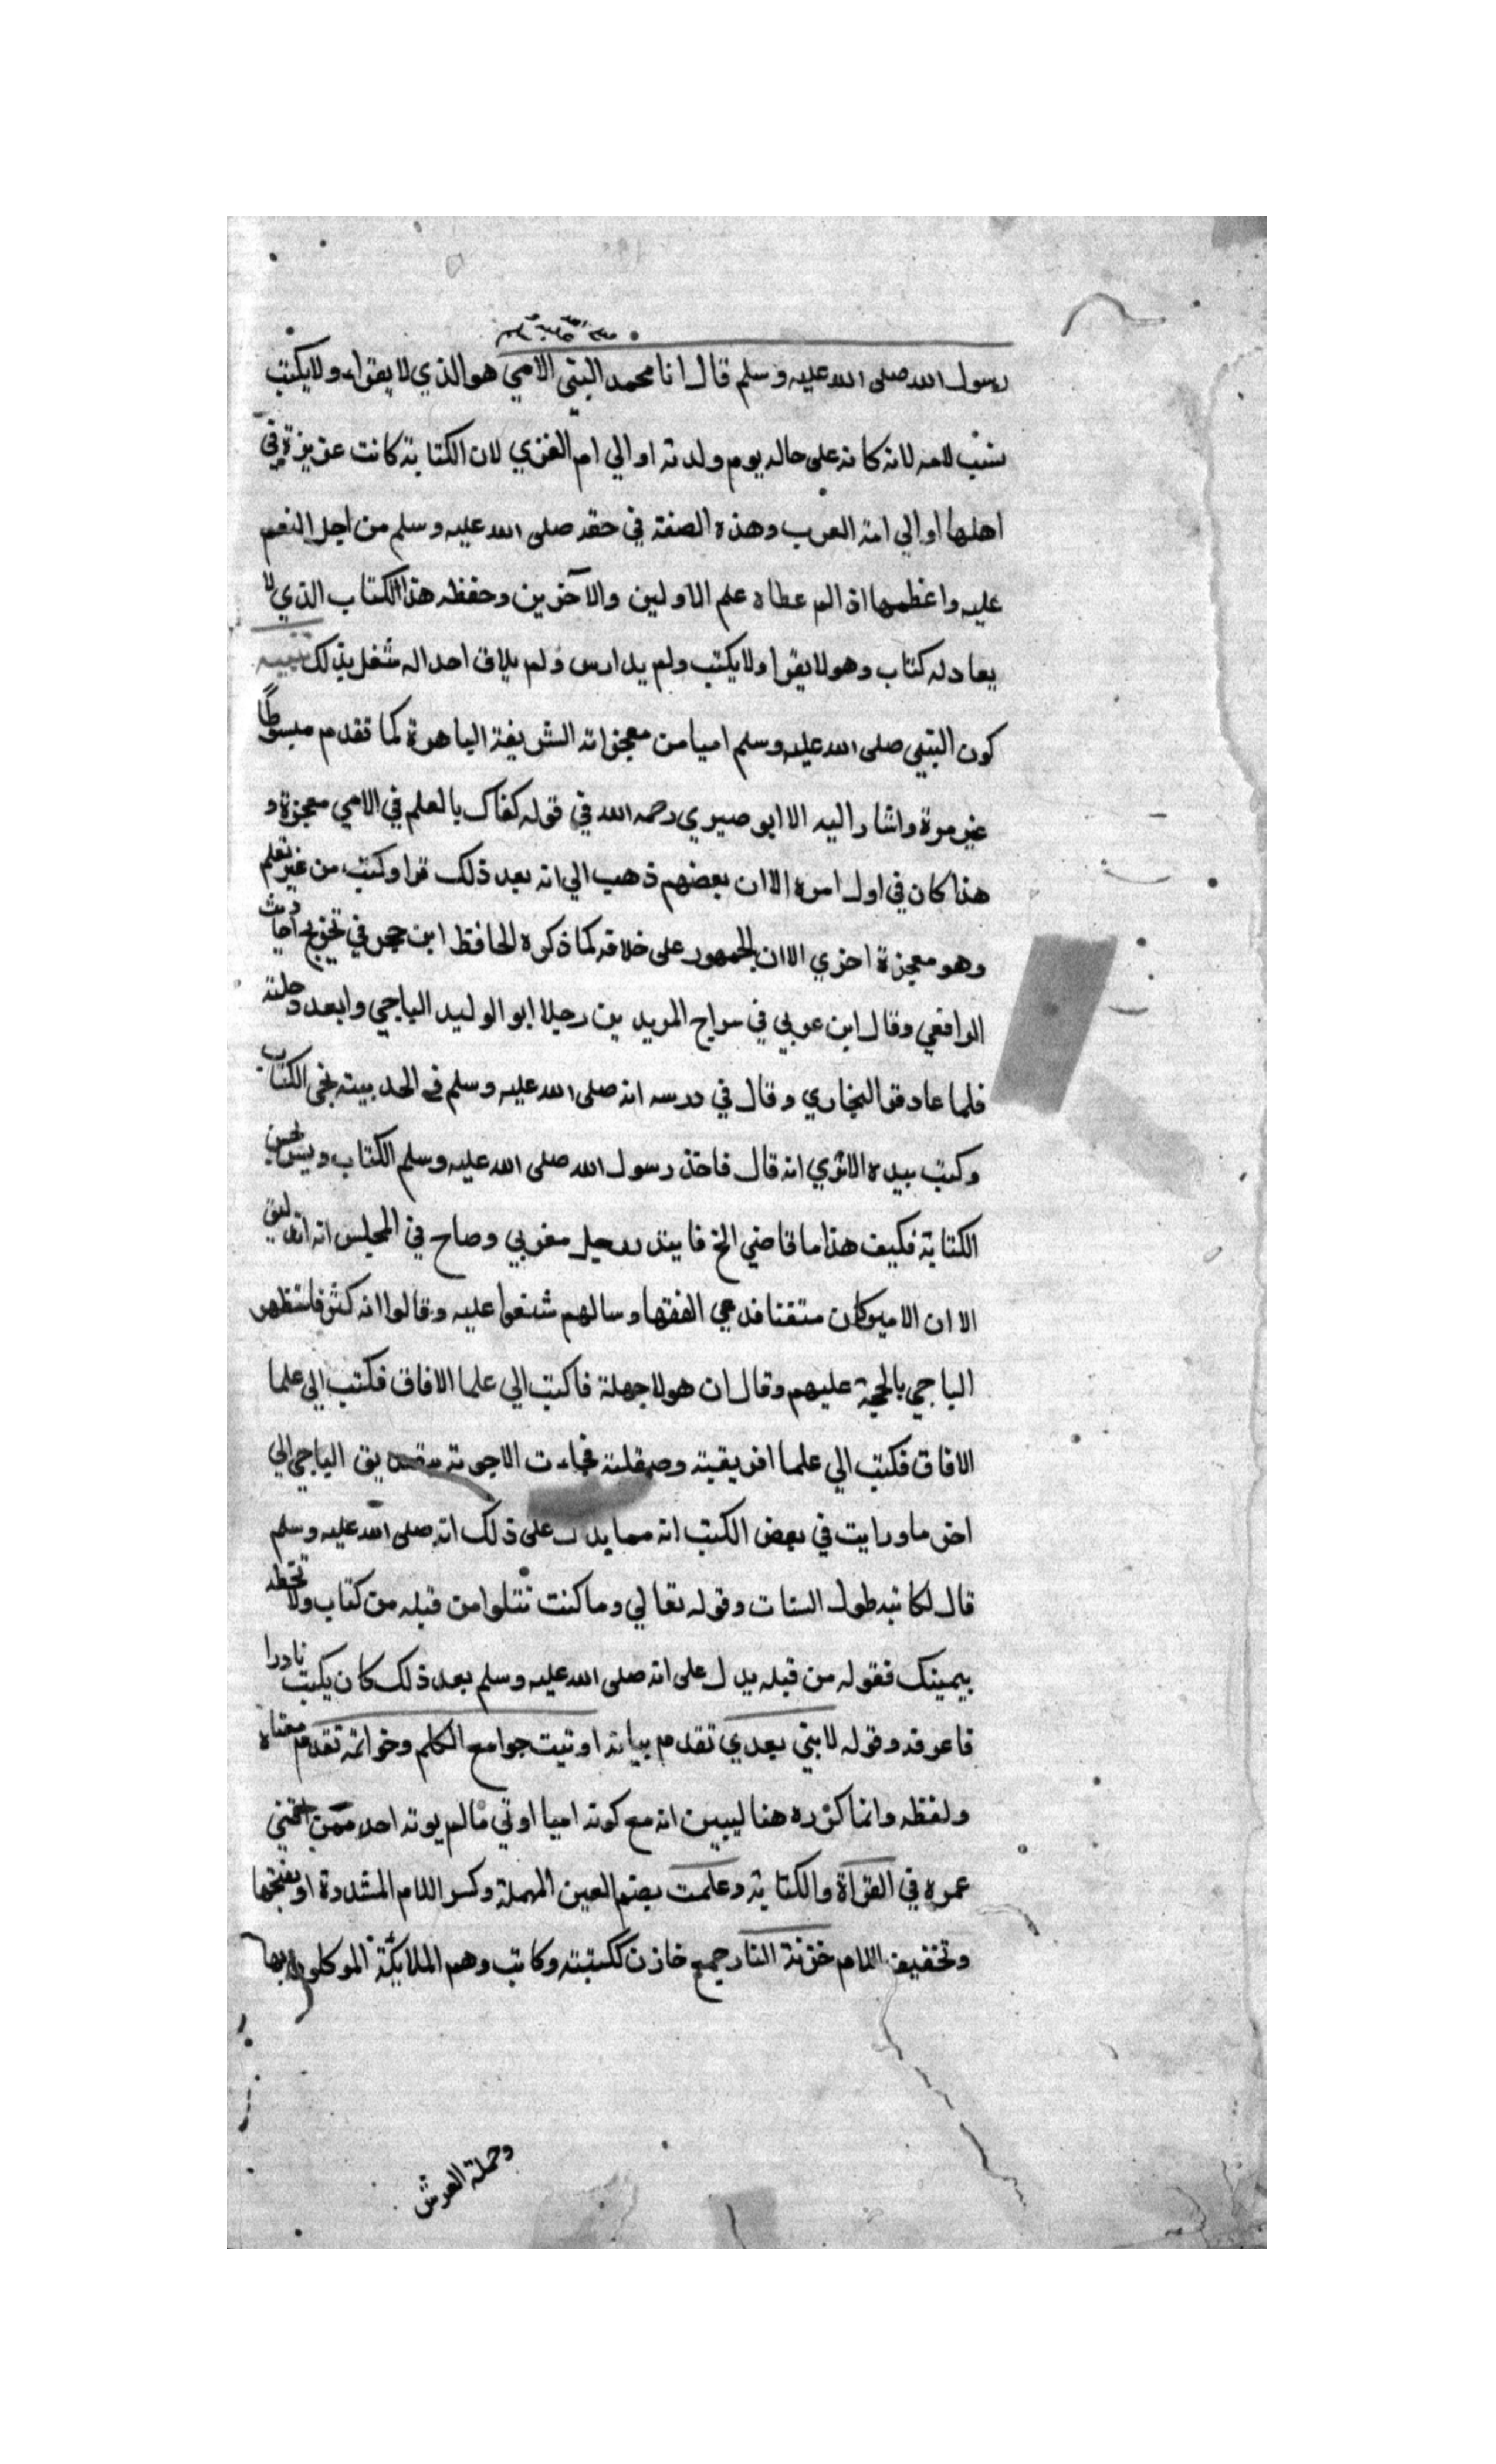 صلى الله عليه وسلم
رسول الله صلى الله عليه وسلم قال انا محمد النبي الامي هو الذي لا يقراء ولا يكتب
نسب لامه لانه كانه على حاله يوم ولدته او الي ام القري لان الكتابة كانت عزيزة في
اهلها او الي امة العرب وهذه الصفة في حقه صلى الله عليه وسلم من اجل النعم
عليه واعظمها اذ الله عطاه علم الاولين والآخرين وحفظه هذا الكتاب الذي لا
يعادله كتاب وهو لا يقرا ولا يكتب ولم يدارس ولم يلاق احدا له شغل بذلك تنبيه
كون النبي صلى الله عليه وسلم اميا من معجزاته الشريفة الباهرة كما تقدم مبسوطًا
غير مرة واشار اليه الا ابو صيري رحمه الله في قوله كفاك بالعلم في الامي معجزة و
هذا كان في اول امره الا ان بعضهم ذهب الي انه بعد ذلك قرا وكتب من غير تعلم
وهو معجزة اخري الا ان الجمهور على خلافه كما ذكره الحافظ ابن حجر في تخريج احاديث
الرافعي وقال ابن عربي في سراج المريد ين رحيلا ابو الوليد الباجي وابعد رحلته
فلما عاد قرا البخاري وقال في درسه انه صلى الله عليه وسلم في الحديبية نحى الكتاب
وكتب بيده الاتري انه قال فاخذ رسول الله صلى الله عليه وسلم الكتاب وليس يحسن
الكتابة فكيف هذا ما قاضي الخ فابتدر رجل مغربي وصاح في المجلس انه زنديق
الا ان الامير كان متقنا فدعي الفقها وسالهم شنعوا عليه وقالوا انه كفر فاستظهر
الباجي بالحجة عليهم وقال ان هولا جهلة فاكتب الي علما الافاق فكتب الي علما
الافاق فكتب الي علما افريقية وصقلية فجاءت الاجوبة بتصديق الباجي الي
اخر ما ورايت في بعض الكتب انه مما يدل على ذلك انه صلى الله عليه وسلم
قال لكاتبه طول السنات وقوله تعالي وما كنت تتلوا من قبله من كتاب ولا تخطه
بيمينك فقوله من قبله يدل على انه صلى الله عليه وسلم بعد ذلك كان يكتب نادرا
فاعرفه وقوله لا نبي بعدي تقدم بيانه اوتيت جوامع الكلم وخواتمه تقدم معناه
ولفظه وانما كرره هنا ليبين انه مع كونه اميا اوتي مالم يوته احد ممن افني
عمره في القراة والكتابة وعلمت بضم العين المهملة وكسر اللام المشددة او بفتحها
وتخفيف اللام خزنة النار جمع خازن ككتبته وكاتب وهم الملايكة الموكلون بها
وحملة العرش